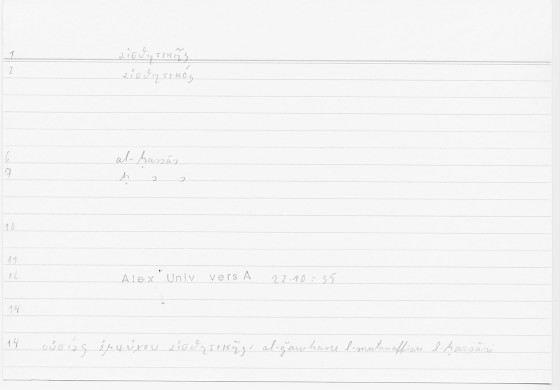 1 αἰσθητικῆς
2 αἰσθητικός
6 al-ḥassās
9 ḥ s s
10
11
12 Alex Univ vers A 22.10 = 35
14
14 οὐσίας ἐμψύχου αἰσθητικῆς: al-ǧawhari l-mutanaffisi l-ḥassāsi